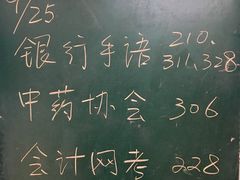 9/25
银行手语 210.
311.328
中药协会 306
会计网考 228